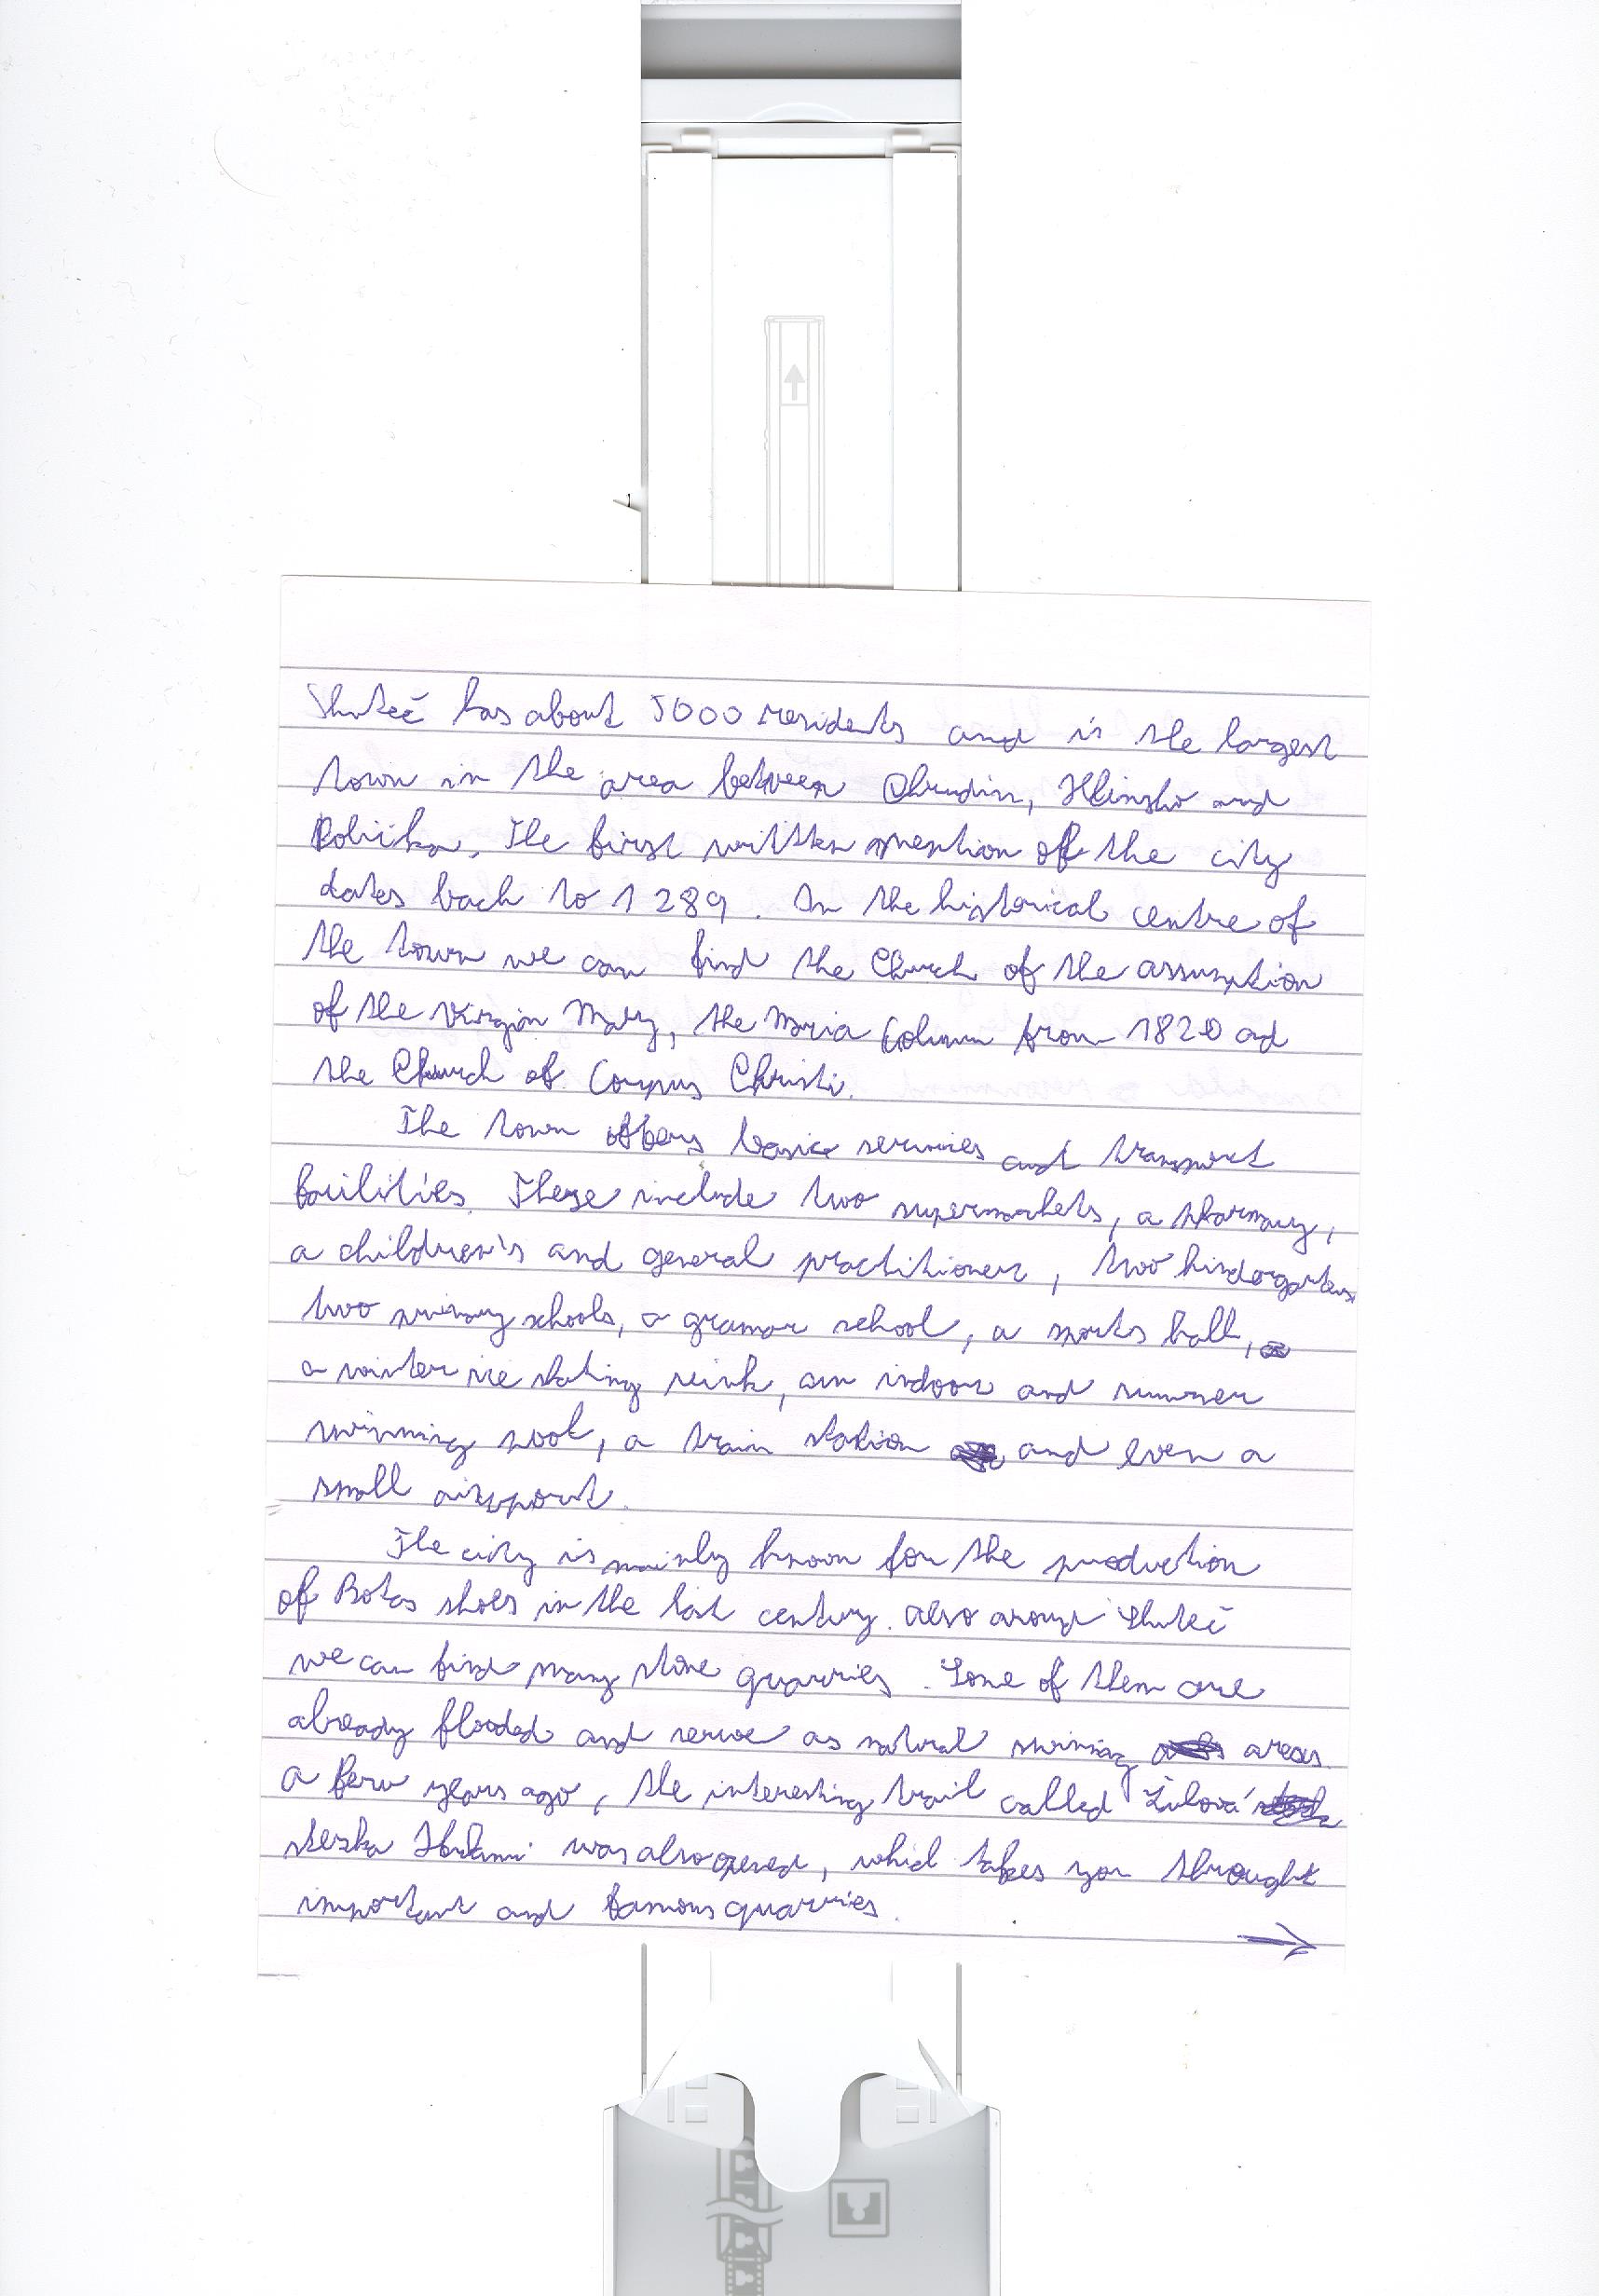 Skuteč has about 5000 residents and is the largest
town in the area between Chrudim, Hlinsko and
Polička. The first written mention of the city
dates back to 1289. In the historical centre of
the town we can find the Church of the assumption
of the Virgin Mary, the Maria Column from 1820 ad
the Church of Corpus Christi.
The town offers basic services and transport
facilities. These include two supermarkets, a pharmacy,
a children's and general practitioner, two kindergartens
two primary schools, a gramar school, a sports hall,
a winter ice skating rink, an indoor and summer
swimming pool, a train station and even a
small airport.
The city is mainly known for the production
of Botas shoes in the last century. Also around Skuteč
we can find many stone quarries. Some of them are
already flooded and serve as natural swiming areas.
A few years ago, the interesting trail called Žulová
stezka Horkami was also opened, which takes you throught
important and famous quarries.
→